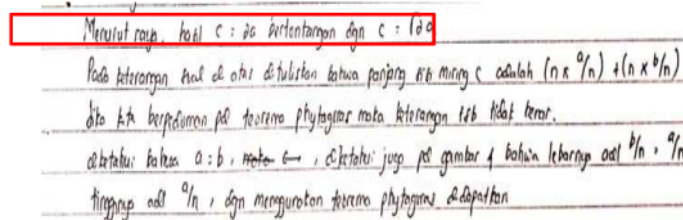 Menurut saya, hasil c = 2a bertentangan dgn c = √2a
Pada keterangan soal di atas dituliskan bahwa panjang sisi miring c adalah (n x a/n) + (n x b/n)
Jika kita berpedoman pd teorema phytagoras maka keterangan tsb tidak benar.
diketahui bahwa a = b, maka c, diketahui juga pd gambar 4 bahwa lebarnya adl b/n, a/n
tingginya adl a/n, dgn menggunakan teorema phytagoras didapatkan